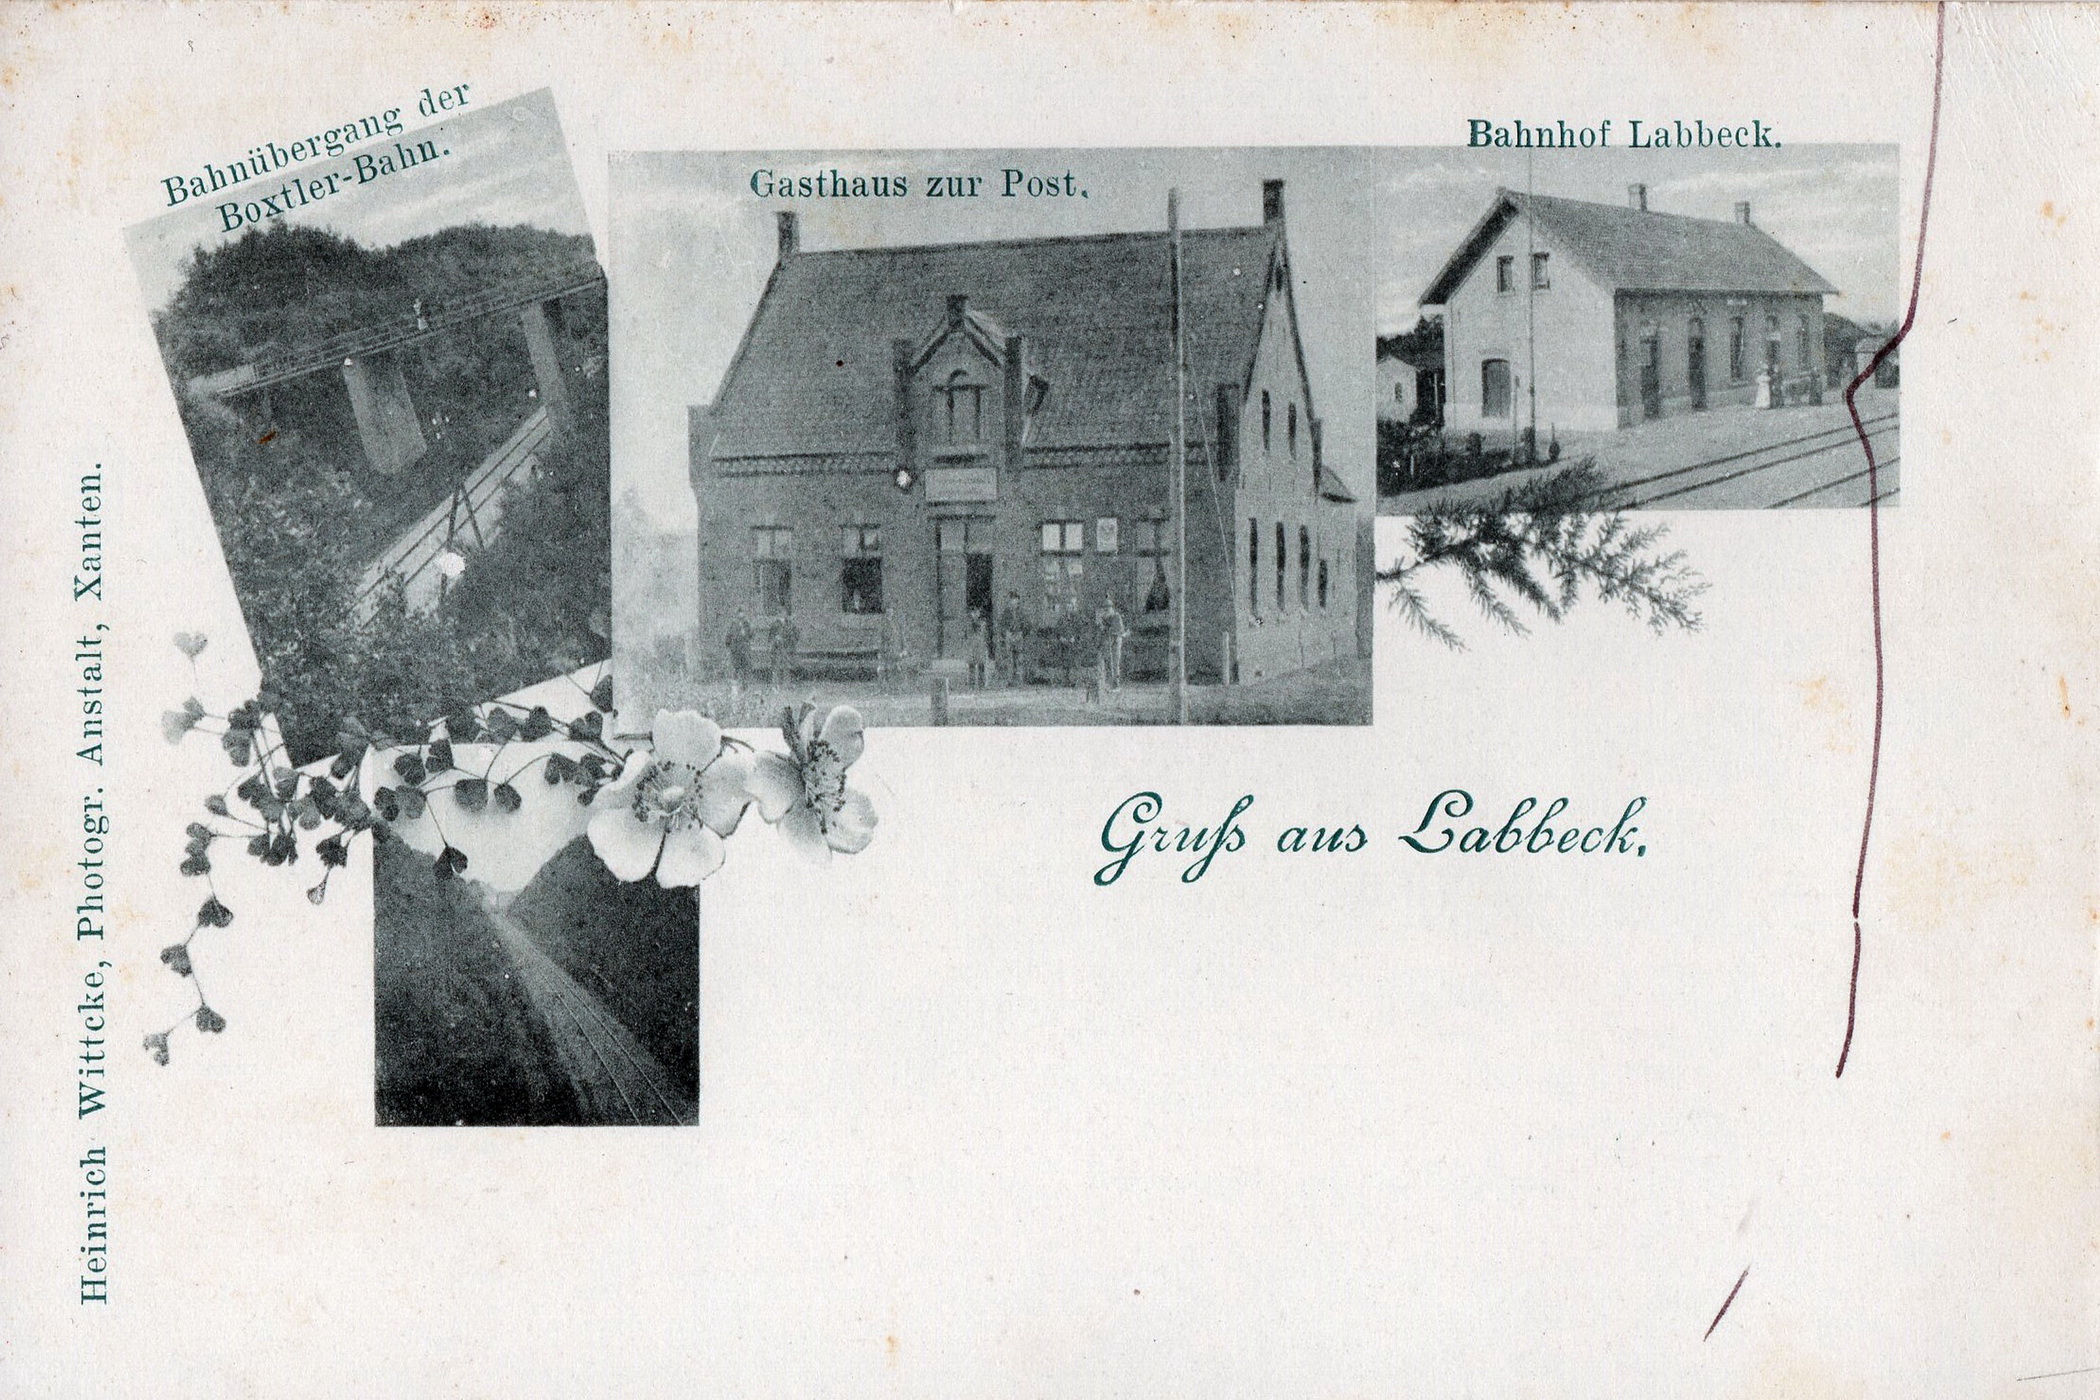 Bahnübergang der
Boxtler-Bahn.
Gasthaus zur Post.
Bahnhof Labbeck.
Gruſs aus Labbeck.
Heinrich Wittcke, Photogr. Anstalt, Xanten.